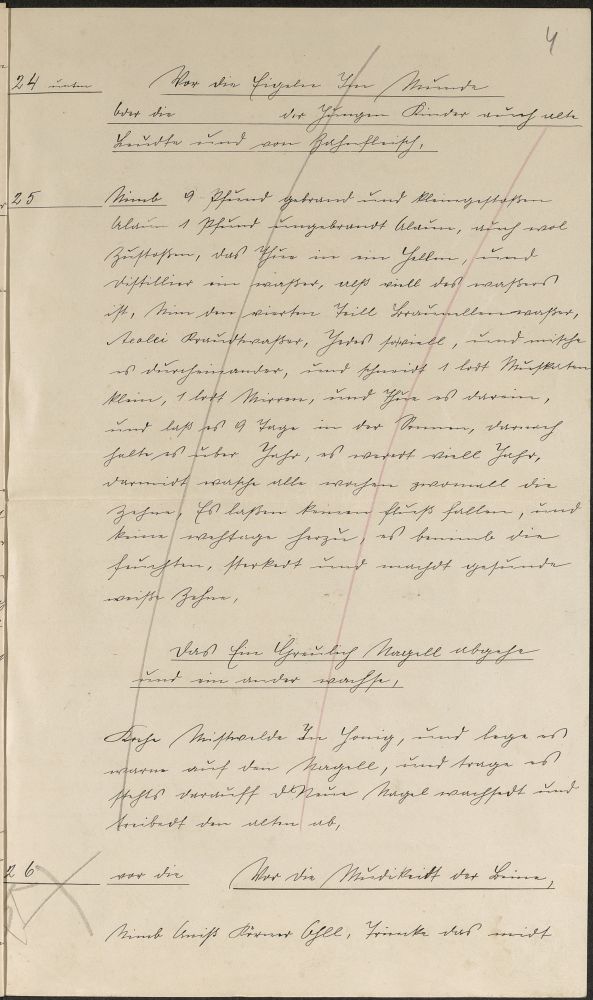 4
24 unten Vor die Eigelin In Munde
oder die der Jungen Kinder auch alte
Leudte und von Zahnfleisch,
25 Nimb 9 Pfund gebrand und kleingestoßen
Alaun 1 Pfund ungebrandt Alaun, auch wol
Zustoßen, das Thue in ein Hellen, und
distillier ein waßer, alß viell des waßers
ist, Nim den vierten Teill Braunellenwaßer,
Acolei Kraudtwaßer, Jedes soviell, und mische
es durcheinander, und schneidt 1 lodt Muskaten
klein, 1 lodt Mirren, und Thue es darein,
und laß es 9 Tage in der Sonnen, darnach
halte es über Jahr, es werert viell Jahr,
darmidt wasche alle wochen zwomall die
Zehne, Es laßen keinen fluß fallen, und
keine wehtage herzu, es benimb die
feuchten, sterkedt und machdt gesunde
weiße Zehne,
Das Ein Greulich Nagell abgehe
und ein ander wachse,
Koche Mistwelde In Honig, und lege es
warm auf den Nagell, und trage es
stehts darauff d Neue Nagel wachsedt und
treibedt den alten ab,
26 vor die Vor die Mudikeitt der Beine,
Nimb Aniß Körner Ohll, Trincke das midt